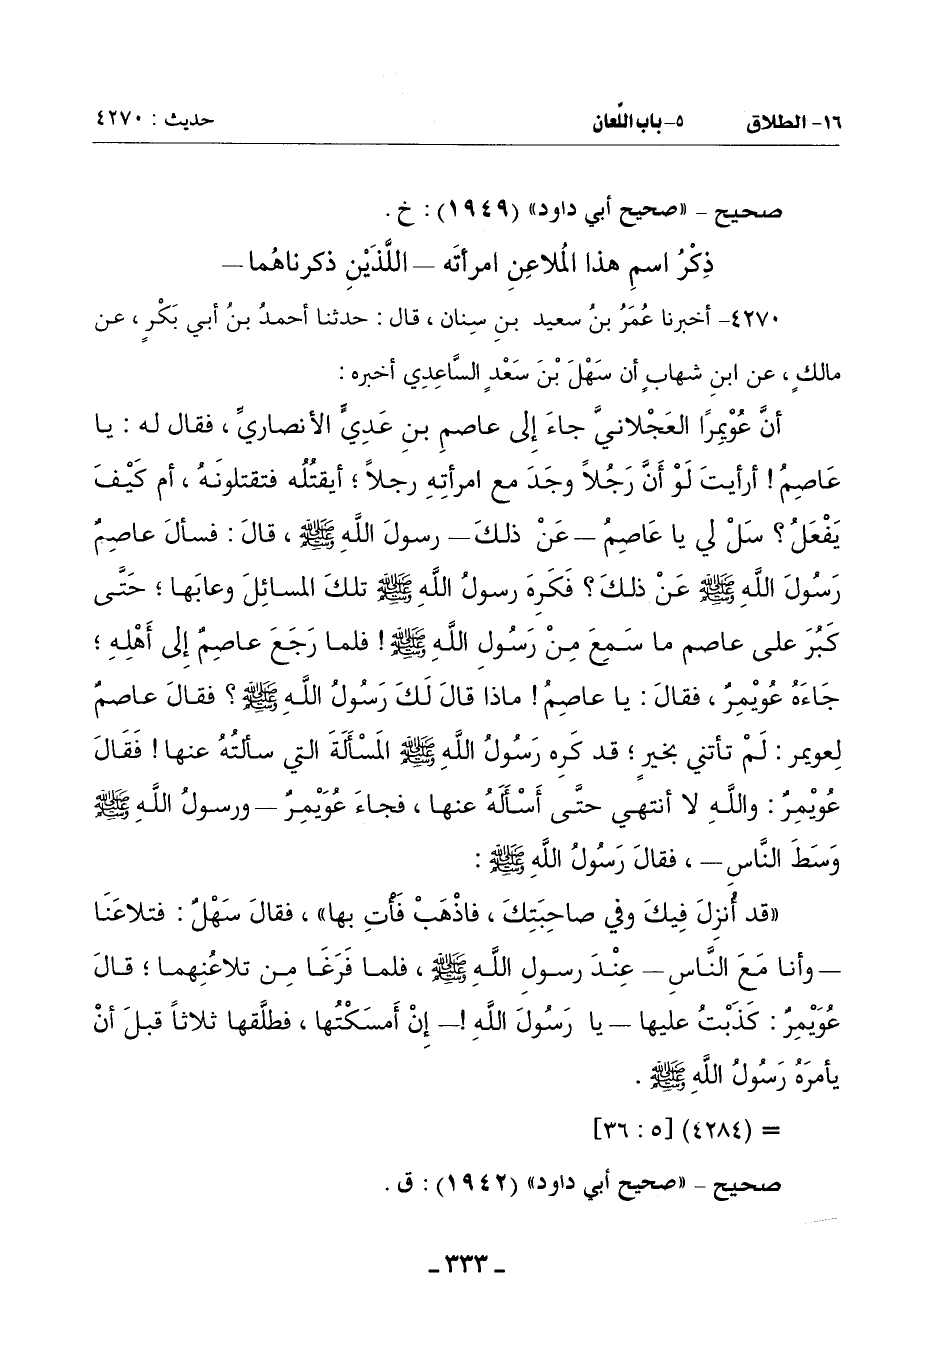 ١٦- الطلاق ٥- باب اللِّعان حديث : ٤٢٧٠
صحيح - «صحيح أبي داود» (١٩٤٩) : خ .
ذِكْرُ اسمِ هذا المُلاعِنِ امرأتَه – اللَّذَيْنِ ذكرناهُما –
٤٢٧٠- أخبرنا عُمَرُ بنُ سعيد بنِ سِنان ، قال : حدثنا أحمدُ بنُ أبي بَكْرٍ ، عن
مالكٍ ، عن ابنِ شهابٍ أن سَهْلَ بْنَ سَعْدٍ السَّاعِدِي أخبره :
أنَّ عُوْيمِرًا العَجْلانيَّ جاءَ إلى عاصمِ بنِ عَديٍّ الأنصاريِّ ، فقال له : يا
عَاصِمُ ! أرأيتَ لَوْ أنَّ رَجُلاً وجَدَ مع امرأتِهِ رجلاً ؛ أيقتُلُه فتقتلونَهُ ، أم كَيْفَ
يَفْعَلُ ؟ سَلْ لي يا عَاصِمُ –عَنْ ذلكَ– رسولَ اللَّهِ ﷺ ، قالَ : فسألَ عاصِمٌ
رَسُولَ اللَّهِ ﷺ عَنْ ذلكَ ؟ فَكَرِهَ رسولُ اللَّهِ ﷺ تلكَ المسائِلَ وعابَها ؛ حَتَّى
كَبُرَ على عاصم ما سَمِعَ مِنْ رَسُولِ اللَّهِ ﷺ ! فلما رَجَعَ عاصِمٌ إلى أَهْلِهِ ؛
جَاءَهُ عُويْمِرٌ ، فقالَ : يا عاصِمُ ! ماذا قالَ لَكَ رَسُولُ اللَّهِ ﷺ ؟ فقالَ عاصمٌ
لِعويمر : لَمْ تأتني بخيرٍ ؛ قد كَرِه رَسُولُ اللَّهِ ﷺ المَسْأَلَةَ التي سألتُهُ عنها ! فَقَالَ
عُويْمِرٌ : واللَّهِ لا أنتهي حتَّى أَسْأَلَهُ عنها ، فجاءَ عُوَيْمِرٌ –ورسولُ اللَّهِ ﷺ
وَسَطَ النَّاسِ– ، فقالَ رَسُولُ اللَّهِ ﷺ :
«قد أُنزِلَ فِيكَ وفي صاحِبَتِكَ ، فاذْهَبْ فَأْتِ بها» ، فقالَ سَهْلٌ : فتلاعَنَا
–وأنا مَعَ النَّاسِ– عِنْدَ رسولِ اللَّهِ ﷺ ، فلما فَرَغَا مِن تلاعُنِهما ؛ قالَ
عُوَيْمِرٌ : كَذَبْتُ عليها –يا رَسُولَ اللَّهِ !– إِنْ أَمسَكْتُها ، فطلَّقها ثلاثاً قبلَ أنْ
يأمرَهُ رَسُولُ اللَّهِ ﷺ .
= (٤٢٨٤) [٥ : ٣٦]
صحيح - «صحيح أبي داود» (١٩٤٢) : ق .
- ٣٣٣ -